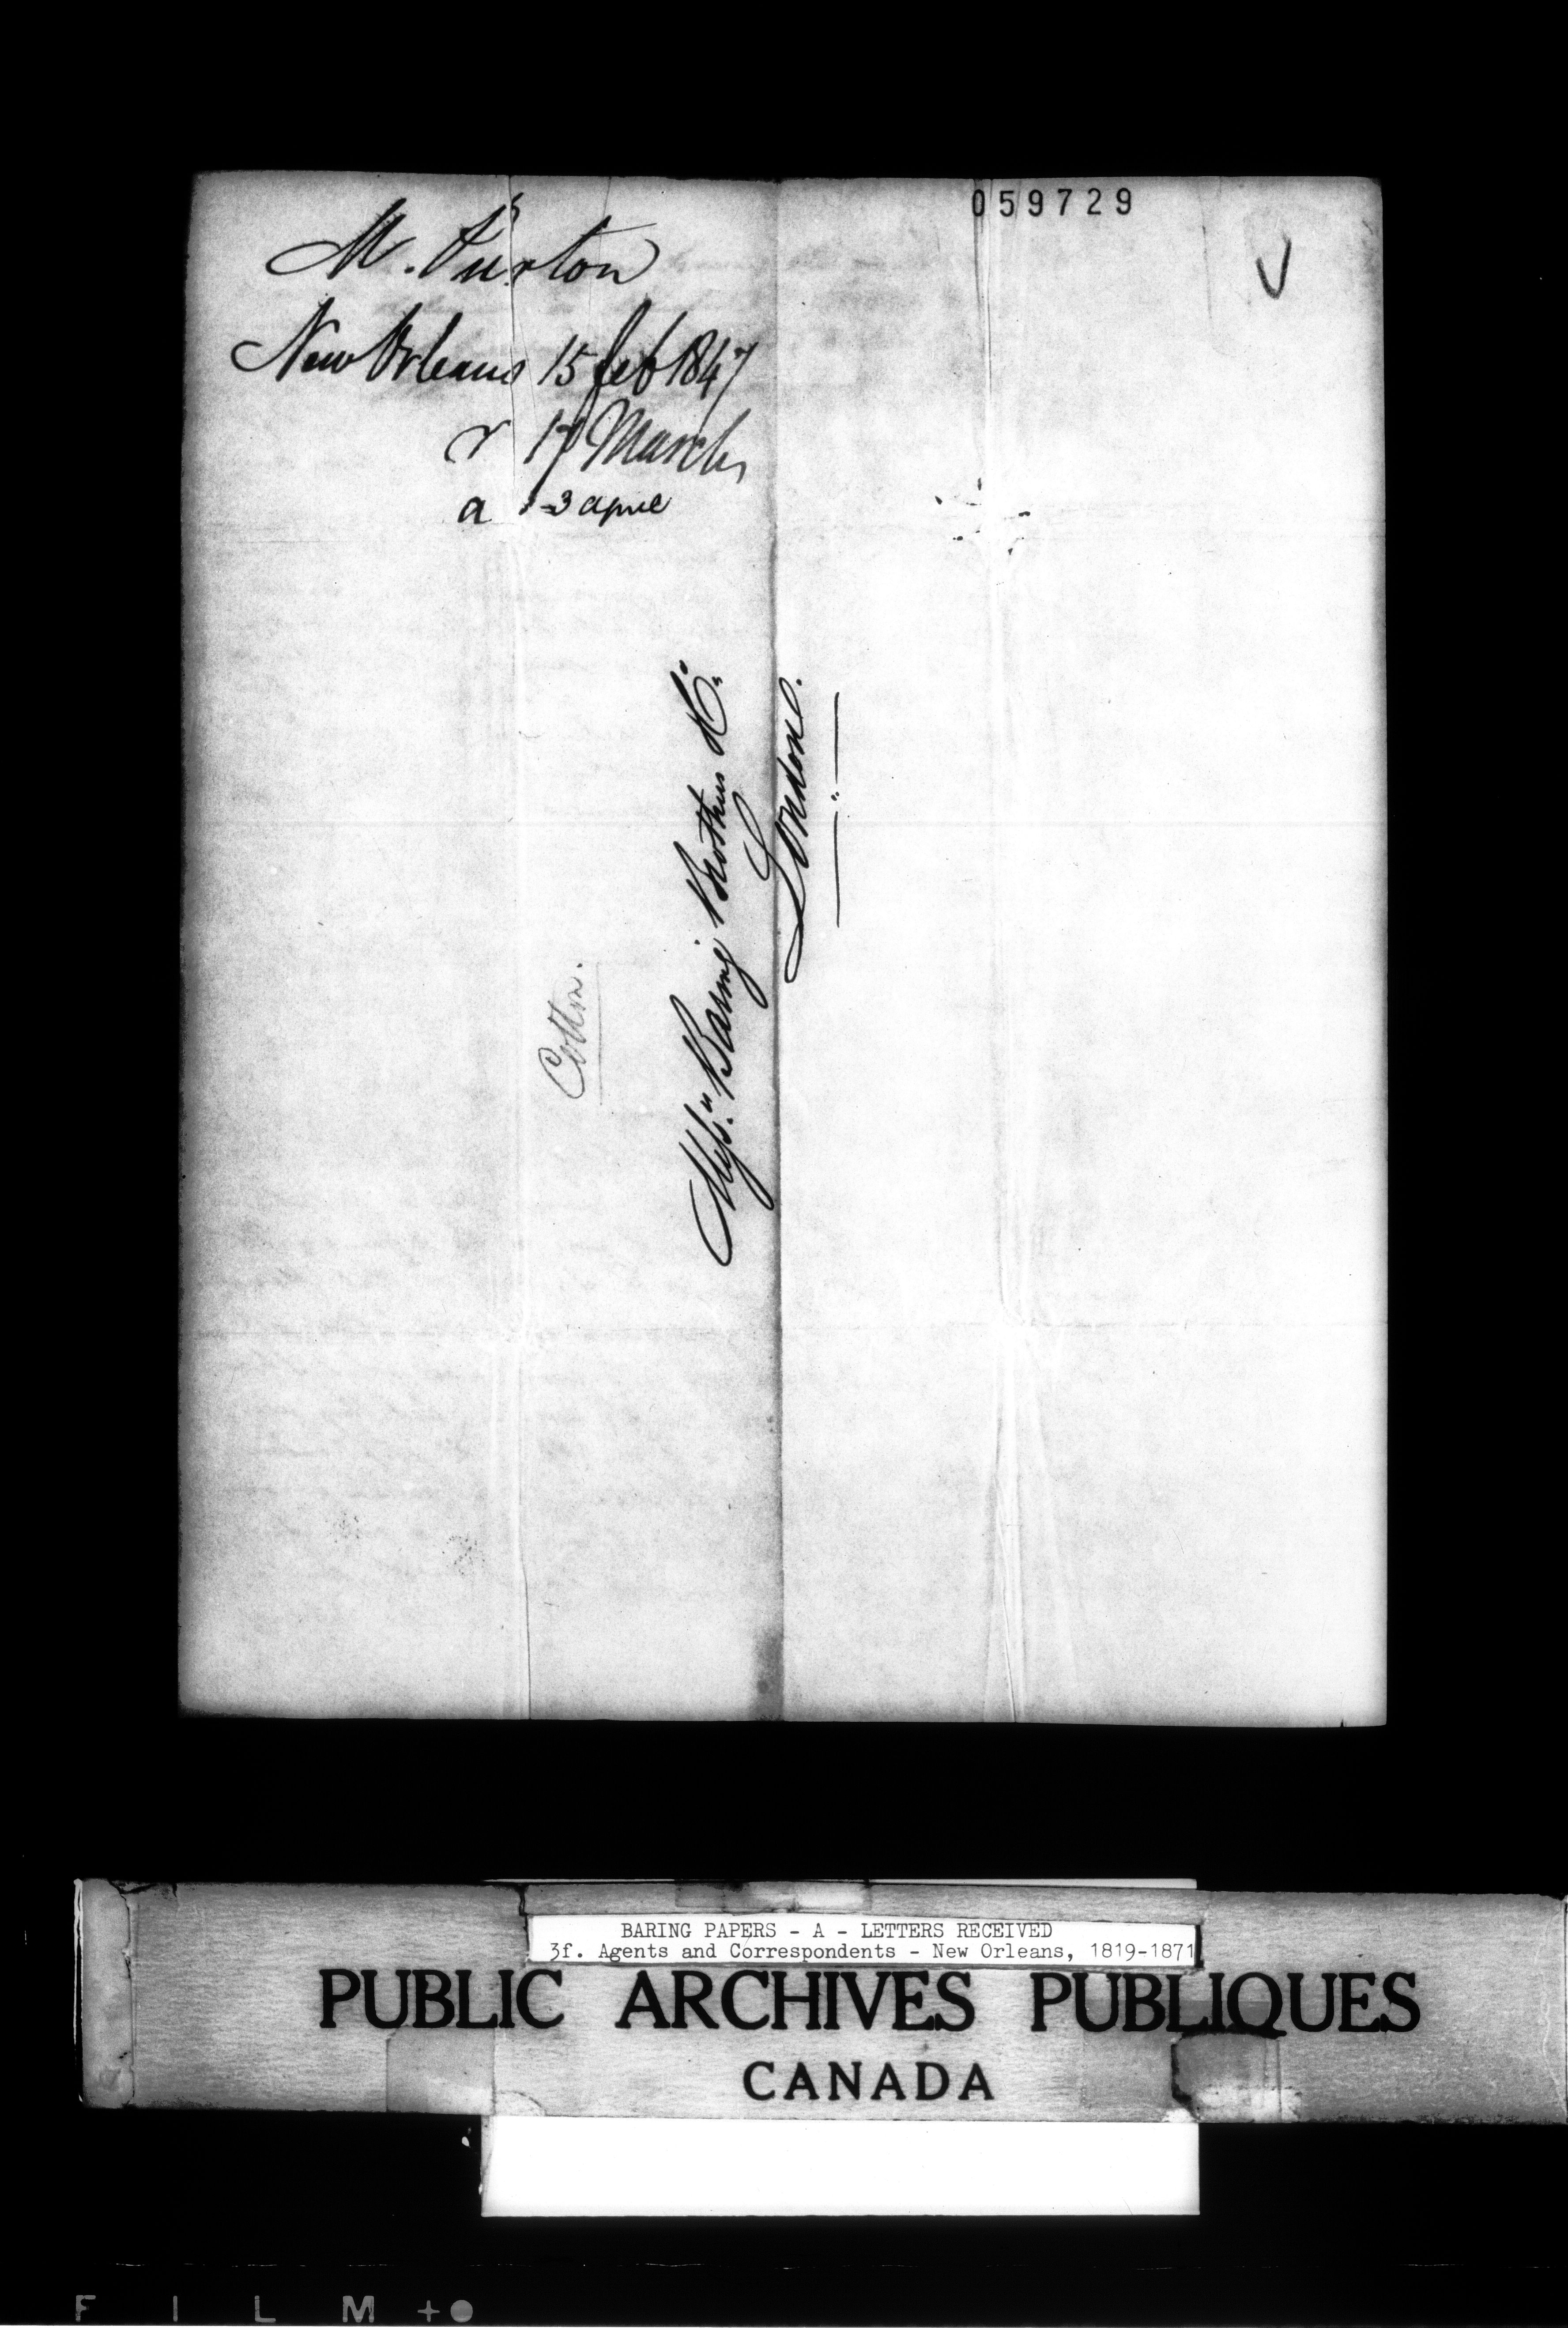 059729
M. Purton
New Orleans 15 feb 1847
r 17 March
a 3 april
Cotton.
Mess.rs Baring Brothers & Co.
London.
BARING PAPERS - A - LETTERS RECEIVED
3f. Agents and Correspondents - New Orleans, 1819-1871
PUBLIC ARCHIVES PUBLIQUES
CANADA
FILM